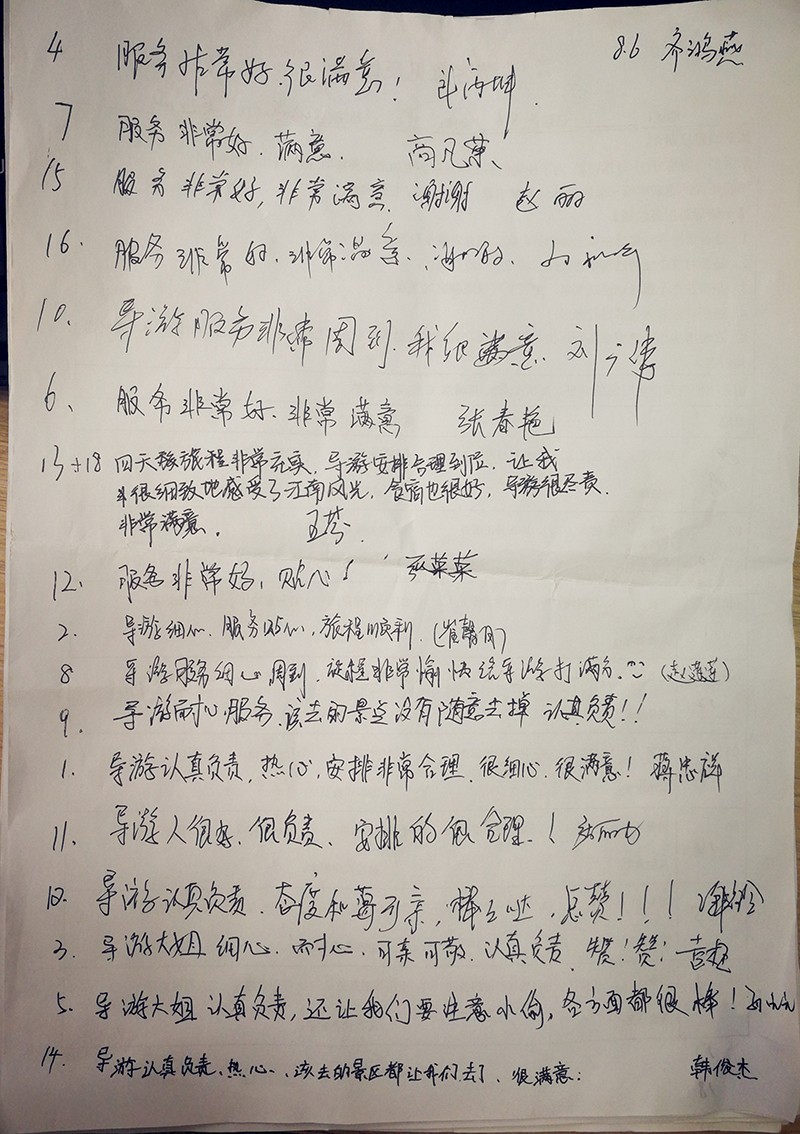 8.6 齐鸿燕
4 服务非常好.很满意!
7 服务非常好.满意. 高凡荣
15 服务非常好,非常满意.谢谢 赵丽
16. 服务非常好.非常满意.
10. 导游服务非常周到.我很满意.刘
6、 服务非常好.非常满意 张春艳
13+18 四天移旅程非常充实.导游安排合理到位.让我
们很细致地感受了江南风光,食宿也很好,导游很尽责.
非常满意. 王芬.
12. 服务非常好,贴心! 菜菜
2. 导游细心.服务贴心,旅程顺利.(崔馨月)
8 导游服务细心周到.旅程非常愉快给导游打满分.(赵莲莲)
9. 导游耐心服务.该去的景点没有随意去掉 认真负责!!
1. 导游认真负责,热心,安排非常合理.很细心.很满意! 蒋忠祥
11. 导游人很好.很负责.安排的很合理.!
12. 导游认真负责.态度和蔼可亲,棒么哒,点赞!!!
3. 导游大姐细心.耐心.可亲可敬.认真负责.赞!赞!
5. 导游大姐认真负责,还让我们要注意小偷,各方面都很棒!
14. 导游认真负责、热心、该去的景区都让我们去了、很满意: 韩俊杰